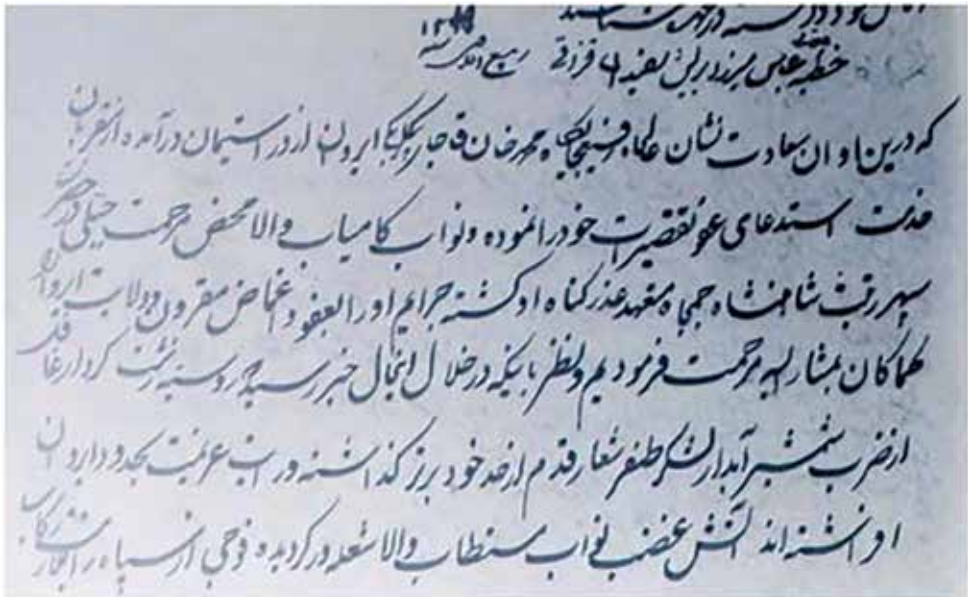 خطبه عباس میرزا ربیع
۱۲
که درین اوان سعادت نشان عالیجاه محمد خان قاجار بیگلربیگی ایروان از در استیمان درآمده از مقربان
خدمت استدعای عفو تقصیرات خود را نموده و نواب کامیاب والا محض مرحمت جبلی در حضرت
سپهر رتبت شاهنشاه جمجاه متعهد عذر گناه او گشته جرایم او را بعفو و اغماض مقرون و ولایت ایروان
کماکان بمشارالیه مرحمت فرمودیم و لنظر باینکه در خلال اینحال خبر رسید که روسیه زشت کردار غافل
از ضرب شمشیر آبدار لشکر ظفر شعار قدم از حد خود برتر گذاشته و رایت عزیمت بحدود ایروان
افراشته اند آتش غضب نواب مستطاب والا شعله ور گردیده و فوجی از سپاه